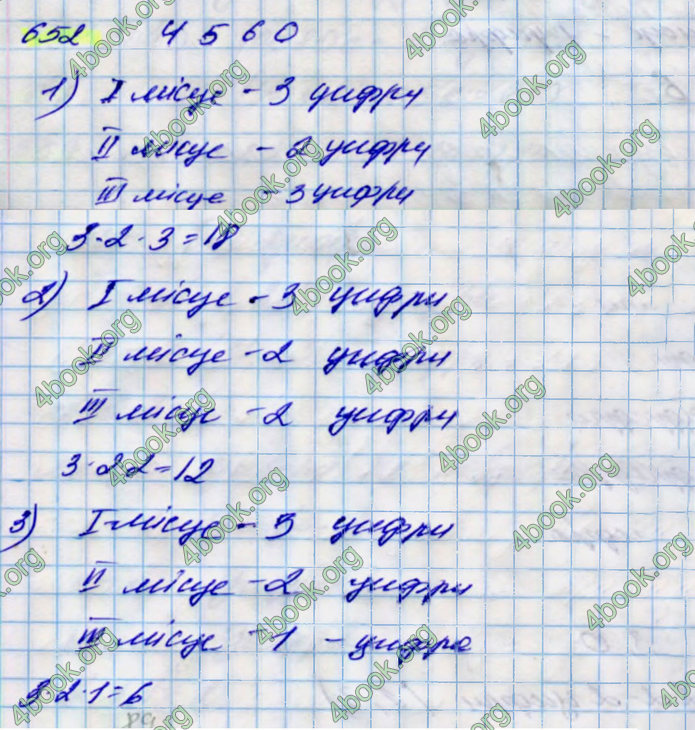 652 4 5 6 0
1) I місце - 3 цифри
II місце - 2 цифри
III місце - 3 цифри
3·2·3=18
2) I місце - 3 цифри
II місце - 2 цифри
III місце - 2 цифри
3·2·2=12
3) I місце - 3 цифри
II місце - 2 цифри
III місце - 1 - цифра
3·2·1=6
4book.org